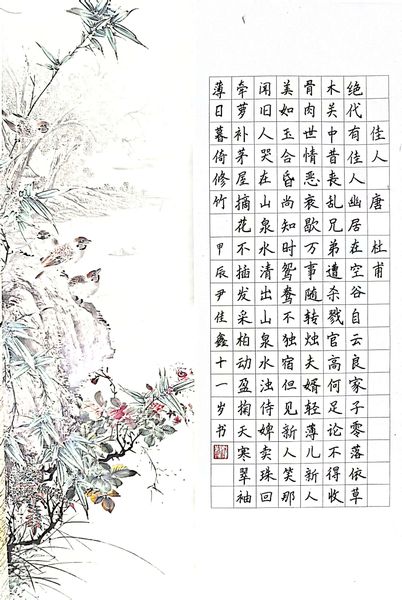 佳人 唐 杜甫
绝代有佳人幽居在空谷自云良家子零落依草
木关中昔丧乱兄弟遭杀戮官高何足论不得收
骨肉世情恶衰歇万事随转烛夫婿轻薄儿新人
美如玉合昏尚知时鸳鸯不独宿但见新人笑那
闻旧人哭在山泉水清出山泉水浊侍婢卖珠回
牵萝补茅屋摘花不插发采柏动盈掬天寒翠袖
薄日暮倚修竹 甲辰尹佳鑫十一岁书